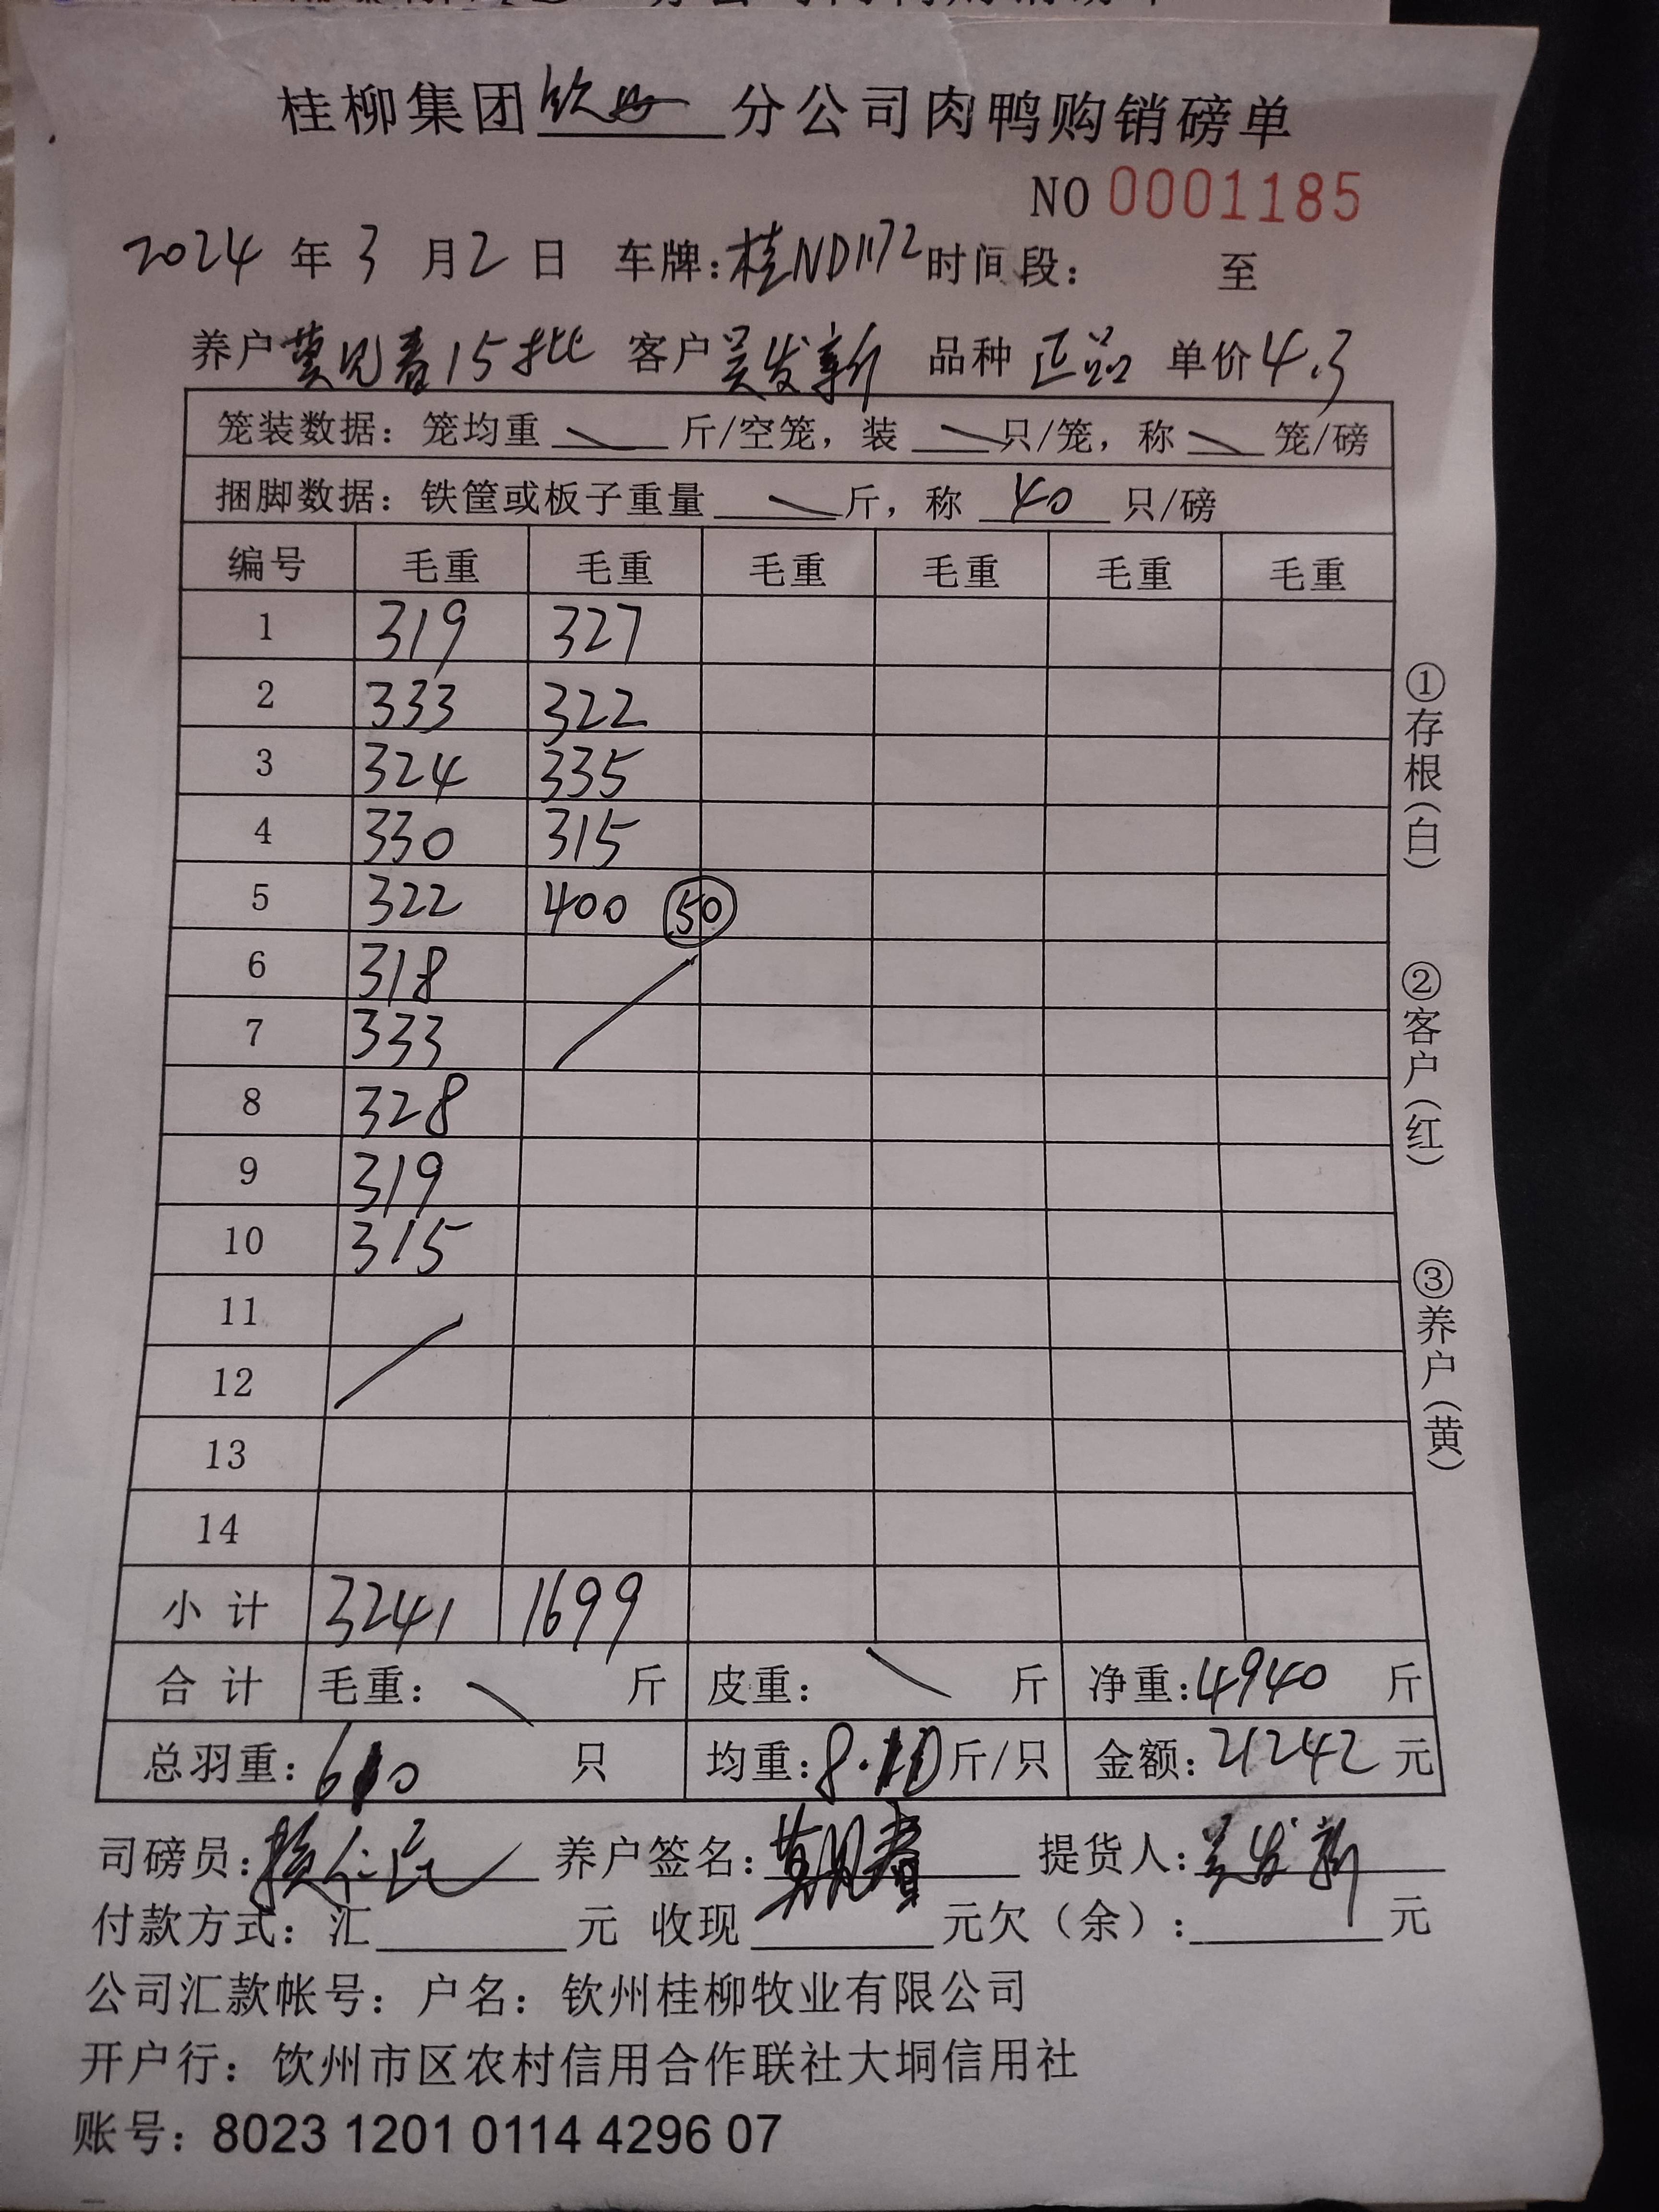 桂柳集团钦州分公司肉鸭购销磅单
NO 0001185
2024年3月2日 车牌:桂ND1172时间段: 至
养户莫见春15批 客户吴发新 品种正品 单价4.3
笼装数据: 笼均重 斤/空笼, 装 只/笼, 称 笼/磅
捆脚数据: 铁筐或板子重量 斤, 称 40 只/磅
编号 毛重 毛重 毛重 毛重 毛重 毛重
1 319 327
2 333 322
3 324 335
4 330 315
5 322 400 50
6 318
7 333
8 328
9 319
10 315
11
12
13
14
小计 3241 1699
合计 毛重: 斤 皮重: 斤 净重:4940 斤
总羽重: 610 只 均重:8.10斤/只 金额:21242元
司磅员: 养户签名:莫见春 提货人:吴发新
付款方式: 汇 元 收现 元欠(余): 元
公司汇款帐号: 户名: 钦州桂柳牧业有限公司
开户行: 钦州市区农村信用合作联社大垌信用社
账号: 8023 1201 0114 4296 07
①存根(白)
②客户(红)
③养户(黄)